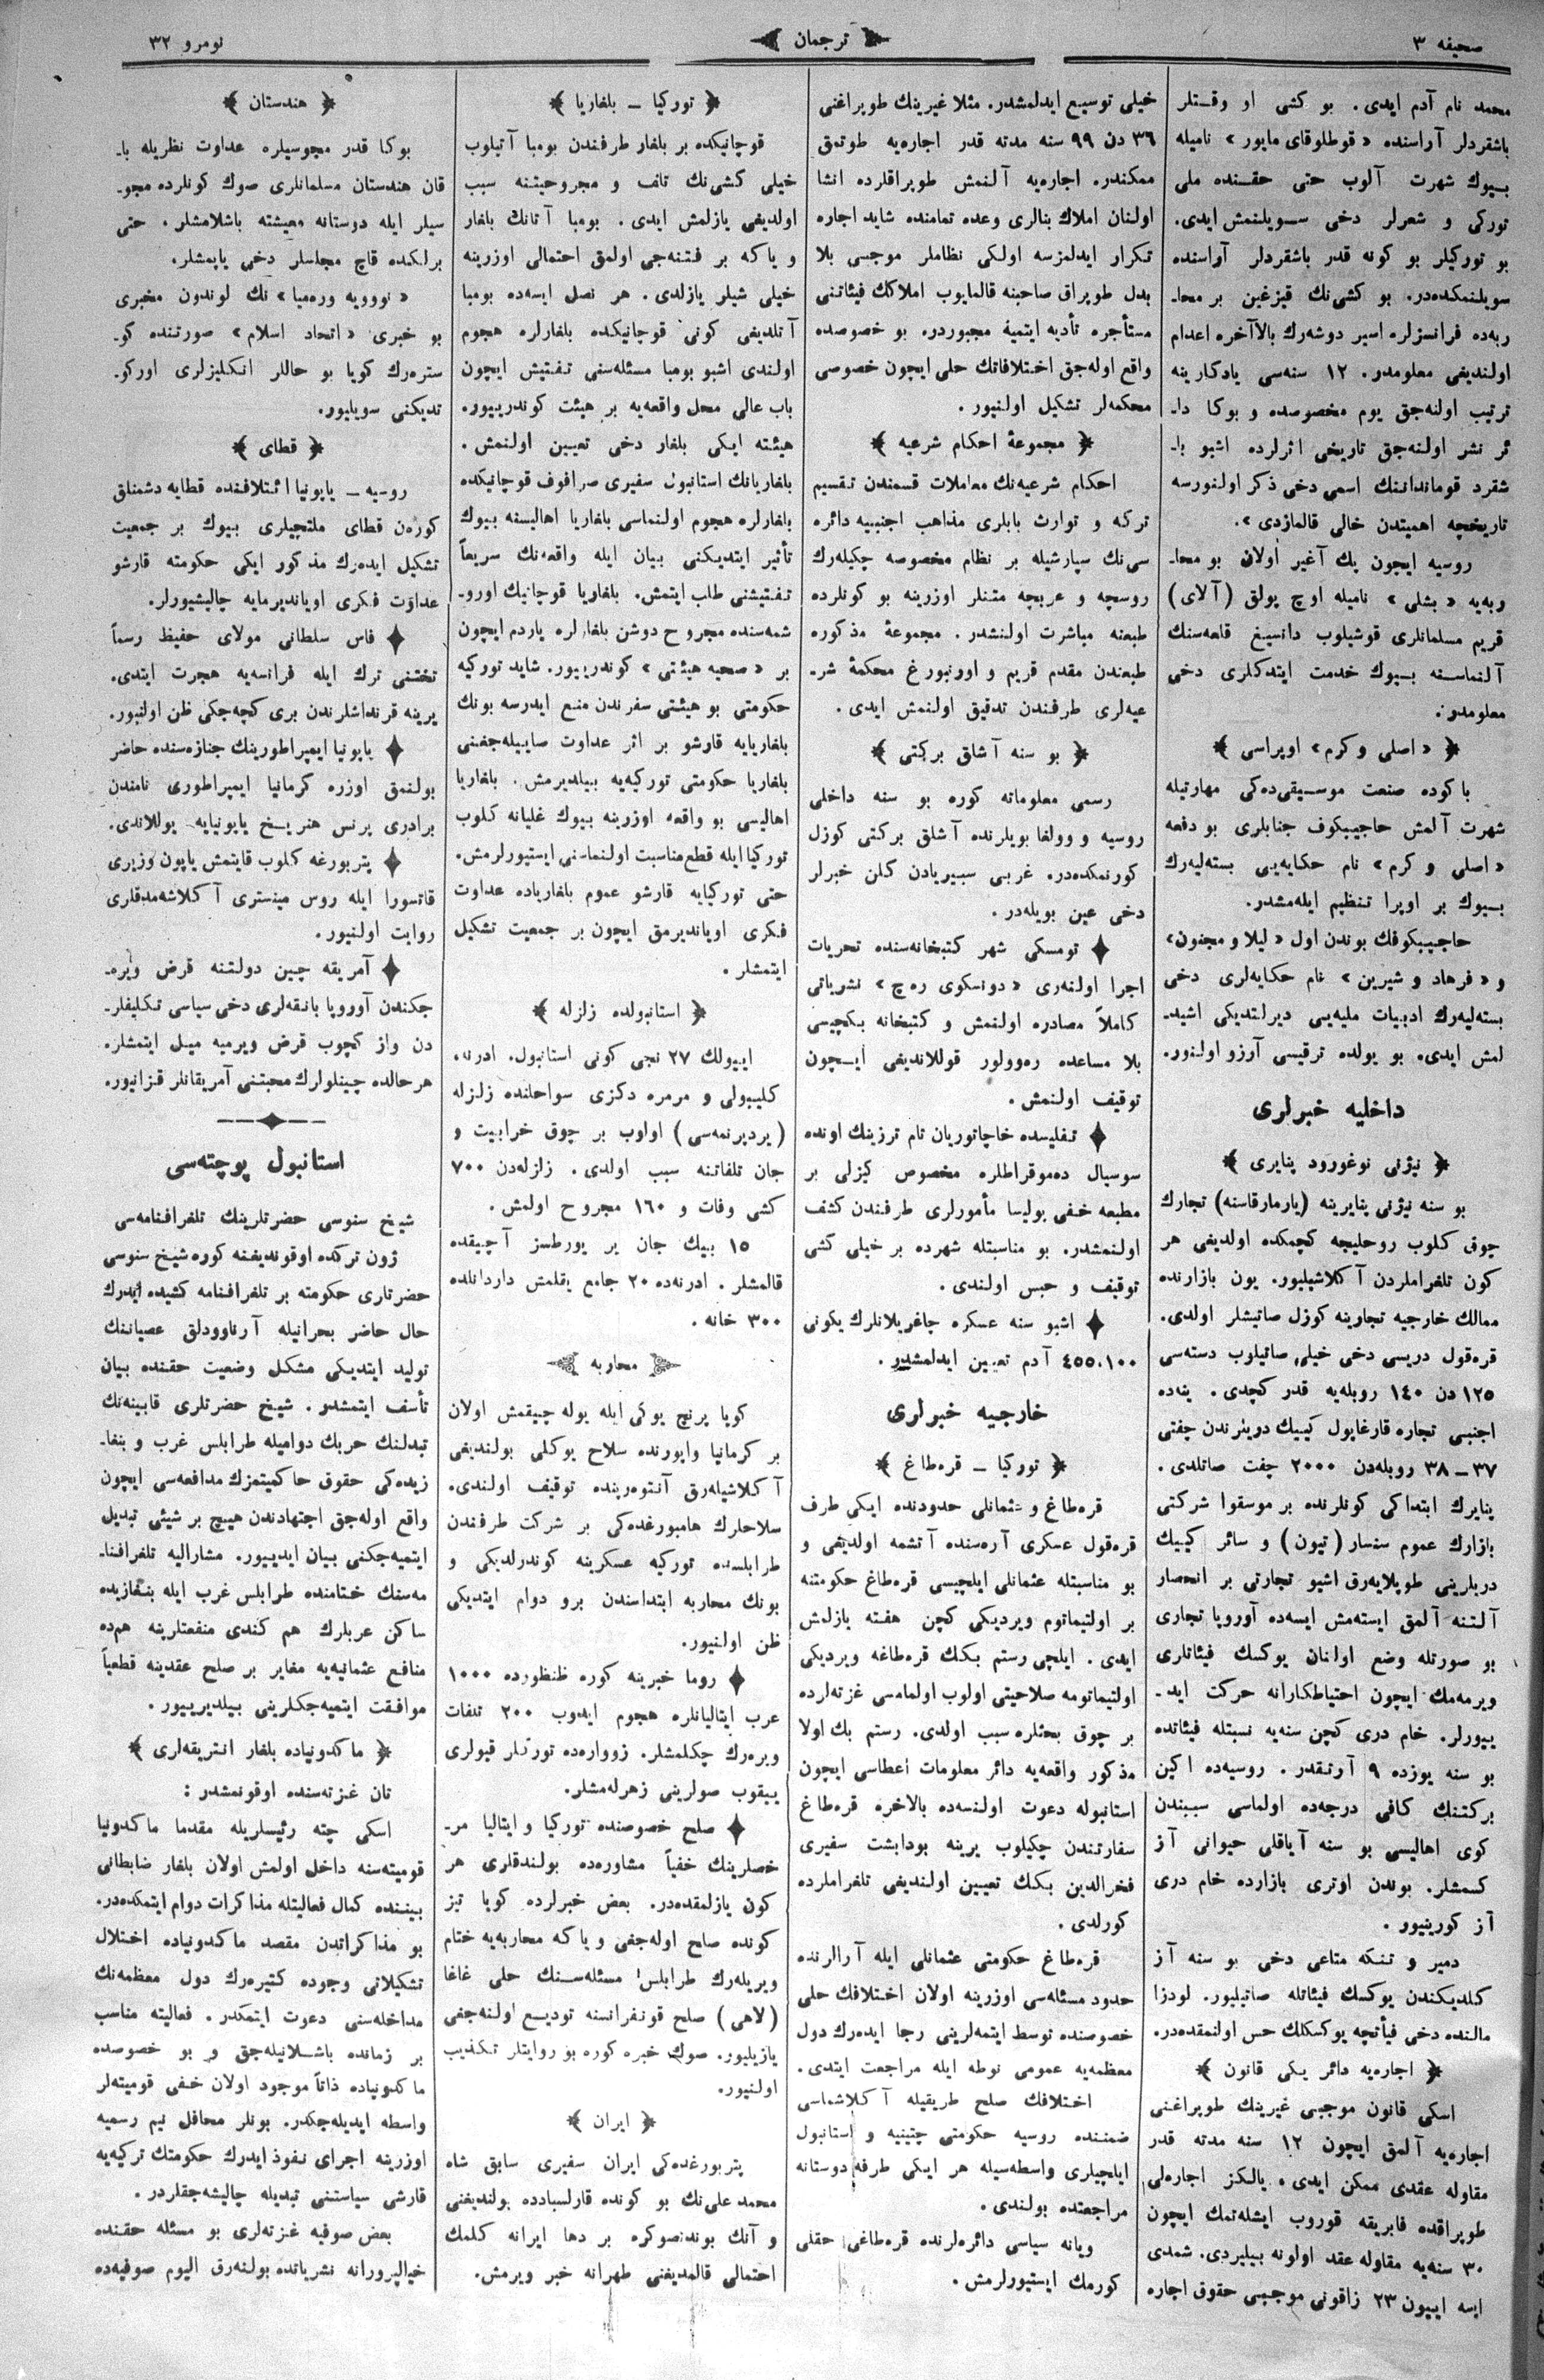 صحیفه ٣
ترجمان
نومرو ٣٢
محمد نام آدم ایدی. بو کشی او وقتلر
باشقردلر آراسنده « قوطلوقای مایور » نامیله
بیوك شهرت آلوب حتی حقنده ملی
تورکی و شعرلر دخی سویلنمش ایدی.
بو تورکیلر بو کونه قدر باشقردلر آراسنده
سویلنمکده‌در. بو کشی‌نك قیزغین بر محا-
ربه‌ده فرانسزلره اسیر دوشه‌رك بالاآخره اعدام
اولندیغی معلومدر. ١٢ سنه‌سی یادکارینه
ترتیب اولنه‌جق یوم مخصوصده و بوکا دا-
ئر نشر اولنه‌جق تاریخی اثرلرده اشبو با-
شقرد قوماندانتك اسمی دخی ذکر اولنورسه
تاریخچه اهمیتدن خالی قالمازدی ».
روسیه ایچون پك آغیر اولان بو محا-
ربه‌یه « بشلی » نامیله اوچ پولق (آلای)
قریم مسلمانلری قوشیلوب دانسیغ قلعه‌سنك
آلنماسنه بیوك خدمت ایتدکلری دخی
معلومدر.
﴿ « اصلی و کرم » اوپراسی ﴾
باکوده صنعت موسیقی‌ده‌کی مهارتیله
شهرت آلمش حاجیبکوف جنابلری بو دفعه
« اصلی و کرم » نام حکایه‌یی بسته‌لیه‌رك
بیوك بر اوپرا تنظیم ایله‌مشدر.
حاجیبکوفك بوندن اول « لیلا و مجنون »
و « فرهاد و شیرین » نام حکایه‌لری دخی
بسته‌لیه‌رك ادبیات ملیه‌یی دیرلتدیکی اشید-
لمش ایدی. بو یولده ترقیسی آرزو اولنور.
داخلیه خبرلری
﴿ نیژنی نوغورود پنایری ﴾
بو سنه نیژنی پنایرینه (یارمارقاسنه) تجارك
چوق کلوب روحلیجه کچمکده اولدیغی هر
کون تلغراملردن آکلاشیلیور. یون بازارنده
ممالك خارجیه تجارینه کوزل صاتیشلر اولدی.
قره‌قول دریسی دخی خیلی صاتیلوب دسته‌سی
١٢٥ دن ١٤٠ روبله‌یه قدر کچدی. ینه‌ده
اجنبی تجاره قارغاپول کییك دوینرندن چفتی
٣٧ – ٣٨ روبله‌دن ٢٠٠٠ چفت صاتلدی.
پنایرك ابتداکی کونلرنده بر موسقوا شرکتی
بازارك عموم سنسار (تیون) و سائر کییك
دریلرینی طوپلایه‌رق اشبو تجارتی بر انحصار
آلتنه آلمق ایسته‌مش ایسه‌ده آوروپا تجاری
بو صورتله وضع اولنان یوکسك فیئاتلری
ویرمه‌مك ایچون احتیاطکارانه حرکت اید-
ییورلر. خام دری کچن سنه‌یه نسبتله فیئاتده
بو سنه یوزده ٩ آرتقدر. روسیه‌ده اکین
برکتنك کافی درجه‌ده اولماسی سببندن
کوی اهالیسی بو سنه آیاقلی حیوانی آز
کسمشلر. بوندن اوتری بازارده خام دری
آز کورینیور.
دمیر و تنکه متاعی دخی بو سنه آز
کلدیکندن یوکسك فیئاتله صاتیلیور. لودزا
مالنده دخی فیأتچه یوکسکلك حس اولنمقده‌در.
﴿ اجاره‌یه دائر یکی قانون ﴾
اسکی قانون موجبی غیرینك طوپراغنی
اجاره‌یه آلمق ایچون ١٢ سنه مدته قدر
مقاوله عقدی ممکن ایدی. یالکز اجاره‌لی
طوپراقده فابریقه قوروب ایشله‌تمك ایچون
٣٠ سنه‌یه مقاوله عقد اولونه بیلیردی. شمدی
ایسه ایییون ٢٣ زاقونی موجبی حقوق اجاره
خیلی توسیع ایدلمشدر. مثلا غیرینك طوپراغنی
٣٦ دن ٩٩ سنه مدته قدر اجاره‌یه طوتمق
ممکندر. اجاره‌یه آلنمش طوپراقلرده انشا
اولنان املاك بنالری وعده تمامنده شاید اجاره
تکرار ایدلمزسه اولکی نظاملر موجبی بلا
بدل طوپراق صاحبنه قالمایوب املاکك فیئاتنی
مستأجره تأدیه ایتمیه مجبوردر. بو خصوصده
واقع اوله‌جق اختلافاتك حلی ایچون خصوصی
محکمه‌لر تشکیل اولنیور.
﴿ مجموعهٔ احکام شرعیه ﴾
احکام شرعیه‌نك معاملات قسمندن تقسیم
ترکه و توارث بابلری مذاهب اجنبییه دائره
سی‌نك سپارشیله بر نظام مخصوصه چکیله‌رك
روسچه و عربچه متنلر اوزرینه بو کونلرده
طبعنه مباشرت اولنشدر. مجموعهٔ مذکوره
طبعندن مقدم قریم و اورنبورغ محکمهٔ شر-
عیه‌لری طرفندن تدقیق اولنمش ایدی.
﴿ بو سنه آشلق برکتی ﴾
رسمی معلوماته کوره بو سنه داخلی
روسیه و وولغا بویلرنده آشلق برکتی کوزل
کورنمکده‌در. غربی سیبریادن کلن خبرلر
دخی عین بویله‌در.
✦ تومسکی شهر کتبخانه‌سنده تحریات
اجرا اولنه‌رق « دونسکوی ره‌چ » نشریاتی
کاملاً مصادره اولنمش و کتبخانه بکچیسی
بلا مساعده ره‌وولور قوللاندیغی ایچون
توقیف اولنمش.
✦ تفلیسده خاچاتوریان نام ترزینك اونده
سوسیال ده‌موقراطلره مخصوص کیزلی بر
مطبعه خفی پولیسا مأمورلری طرفندن کشف
اولنمشدر. بو مناسبتله شهرده بر خیلی کشی
توقیف و حبس اولندی.
✦ اشبو سنه عسکره جاغریلانلرك یکونی
٤٥٥،١٠٠ آدم تعیین ایدلمشدر.
خارجیه خبرلری
﴿ تورکیا – قره‌طاغ ﴾
قره‌طاغ و عثمانلی حدودنده ایکی طرف
قره‌قول عسکری آره‌سنده آتشمه اولدیغی و
بو مناسبتله عثمانلی ایلچیسی قره‌طاغ حکومتنه
بر اولتیماتوم ویردیکی کچن هفته یازلمش
ایدی. ایلچی رستم بکك قره‌طاغه ویردیکی
اولتیماتومه صلاحیتی اولوب اولمامسی غزته‌لرده
بر چوق بحثلره سبب اولدی. رستم بك اولا
مذکور واقعه‌یه دائر معلومات اعطاسی ایچون
استانبوله دعوت اولنسه‌ده بالاخره قره‌طاغ
سفارتندن چکیلوب یرینه بوداپشت سفیری
فخرالدین بکك تعیین اولندیغی تلغراملرده
کورلدی.
قره‌طاغ حکومتی عثمانلی ایله آرالرنده
حدود مسئله‌سی اوزرینه اولان اختلافك حلی
خصوصنده توسط ایتمه‌لرینی رجا ایده‌رك دول
معظمه‌یه عمومی نوطه ایله مراجعت ایتدی.
اختلافك صلح طریقیله آکلاشماسی
ضمننده روسیه حکومتی چتینیه و استانبول
ایلچیلری واسطه‌سیله هر ایکی طرفه دوستانه
مراجعتده بولندی.
ویانه سیاسی دائره‌لرنده قره‌طاغی حقلی
کورمك ایستیورلرمش.
﴿ تورکیا – بلغاریا ﴾
قوچانیکده بر بلغار طرفندن بومبا آتیلوب
خیلی کشی‌نك تلف و مجروحیتنه سبب
اولدیغی یازلمش ایدی. بومبا آتانك بلغار
و یاکه بر فتنه‌جی اولمق احتمالی اوزرینه
خیلی شیلر یازلدی. هر نصل ایسه‌ده بومبا
آتلدیغی کونی قوچانیکده بلغارلره هجوم
اولندی اشبو بومبا مسئله‌سنی تفتیش ایچون
باب عالی محل واقعه‌یه بر هیئت کوندرییور.
هیئته ایکی بلغار دخی تعیین اولنمش.
بلغاریانك استانبول سفیری صرافوف قوچانیکده
بلغارلره هجوم اولنماسی بلغاریا اهالیسنه بیوك
تأثیر ایتدیکنی بیان ایله واقعه‌نك سریعاً
تفتیشنی طلب ایتمش. بلغاریا قوچانیك اورو-
شمه‌سنده مجروح دوشن بلغارلره یاردم ایچون
بر « صحیه هیئتی » کوندرییور. شاید تورکیه
حکومتی بو هیئتی سفرندن منع ایدرسه بونك
بلغاریایه قارشو بر اثر عداوت صاییله‌جغنی
بلغاریا حکومتی تورکیه‌یه بیلدیرمش. بلغاریا
اهالیسی بو واقعه اوزرینه بیوك غلیانه کلوب
تورکیا ایله قطع مناسبت اولنماسنی ایستیورلرمش.
حتی تورکیایه قارشو عموم بلغاریاده عداوت
فکری اویاندیرمق ایچون بر جمعیت تشکیل
ایتمشلر.
﴿ استانبولده زلزله ﴾
اییولك ٢٧ نجی کونی استانبول، ادرنه،
کلیبولی و مرمره دکزی سواحلنده زلزله
(یردپرنمه‌سی) اولوب بر چوق خرابیت و
جان تلفاتنه سبب اولدی. زلزله‌دن ٧٠٠
کشی وفات و ١٦٠ مجروح اولمش.
١٥ بیك جان یر یورطسز آچیقده
قالمشلر. ادرنه‌ده ٢٠ جامع یقلمش داردانلده
٣٠٠ خانه.
محاربه
کویا پرنچ یوکی ایله یوله چیقمش اولان
بر کرمانیا واپورنده سلاح یوکلی بولندیغی
آکلاشیله‌رق آنتوه‌رپنده توقیف اولندی.
سلاحلرك هامبورغده‌کی بر شرکت طرفندن
طرابلسده تورکیه عسکرینه کوندرلدیکی و
بونك محاربه ابتداسندن برو دوام ایتدیکی
ظن اولنیور.
✦ روما خبرینه کوره ظنظورده ١٠٠٠
عرب ایتالیانلره هجوم ایدوب ٢٠٠ تلفات
ویره‌رك چکلمشلر. زوواره‌ده تورکلر قیولری
ییقوب صولرینی زهرله‌مشلر.
✦ صلح خصوصنده تورکیا و ایتالیا مر-
خصلرینك خفیاً مشاوره‌ده بولندقلری هر
کون یازلمقده‌در. بعض خبرلرده کویا تیز
کونده صلح اوله‌جغی و یاکه محاربه‌یه ختام
ویریله‌رك طرابلس مسئله‌سنك حلی غاغا
(لاهی) صلح قونفرانسنه تودیع اولنه‌جغی
یازیلیور. صوك خبره کوره بو روایتلر تکذیب
اولنیور.
﴿ ایران ﴾
پتربورغده‌کی ایران سفیری سابق شاه
محمد علی‌نك بو کونده قارلسبادده بولندیغنی
و آنك بوندنصوکره بر دها ایرانه کلمك
احتمالی قالمدیغنی طهرانه خبر ویرمش.
﴿ هندستان ﴾
بوکا قدر مجوسیلره عداوت نظریله با-
قان هندستان مسلمانلری صوك کونلرده مجو-
سیلر ایله دوستانه معیشته باشلامشلر. حتی
برلکده قاچ مجلسلر دخی یاپمشلر.
« نوویه وره‌میا » نك لوندون مخبری
بو خبری « اتحاد اسلام » صورتنده کو-
ستره‌رك کویا بو حاللر انکلیزلری اورکو-
تدیکنی سویلیور.
﴿ قطای ﴾
روسیه – یاپونیا ائتلافنده قطایه دشمنلق
کوره‌ن قطای ملتچیلری بیوك بر جمعیت
تشکیل ایده‌رك مذکور ایکی حکومته قارشو
عداوت فکری اویاندیرمایه چالیشیورلر.
✦ فاس سلطانی مولای حفیظ رسماً
تختنی ترك ایله فرانسه‌یه هجرت ایتدی.
یرینه قرنداشلرندن بری کچه‌جکی ظن اولنیور.
✦ یاپونیا ایمپراطورینك جنازه‌سنده حاضر
بولنمق اوزره کرمانیا ایمپراطوری نامندن
برادری پرنس هنریخ یاپونیایه یوللاندی.
✦ پتربورغه کلوب قایتمش یاپون وزیری
قاتسورا ایله روس مینستری آکلاشه‌مدقلری
روایت اولنیور.
✦ آمریقه چین دولتنه قرض ویره-
جکندن آوروپا بانقه‌لری دخی سیاسی تکلیفلر-
دن واز کچوب قرض ویرمیه میل ایتمشلر.
هر حالده چینلولرك محبتنی آمریقانلر قزانیور.
استانبول پوچته‌سی
شیخ سنوسی حضرتلرینك تلغرافنامه‌سی
ژون ترکده اوقوندیغنه کوره شیخ سنوسی
حضرتلری حکومته بر تلغرافنامه کشیده ایدرك
حال حاضر بحرانیله آرناوودلق عصیاننك
تولید ایتدیکی مشکل وضعیت حقنده بیان
تأسف ایتمشدر. شیخ حضرتلری قابینه‌نك
تبدلنك حربك دوامیله طرابلس غرب و بنغا-
زیده‌کی حقوق حاکمیتمزك مدافعه‌سی ایچون
واقع اوله‌جق اجتهادندن هیچ بر شیئی تبدیل
ایتمیه‌جکنی بیان ایدییور. مشارالیه تلغرافنا-
مه‌سنك ختامنده طرابلس غرب ایله بنغازیده
ساکن عربلرك هم کندی منفعتلرینه هم‌ده
منافع عثمانیه‌یه مغایر بر صلح عقدینه قطعیاً
موافقت ایتمیه‌جکلرینی بیلدیرییور.
﴿ ماکدونیاده بلغار انتریقه‌لری ﴾
تان غزته‌سنده اوقونمشدر :
اسکی چته رئیسلریله مقدما ماکدونیا
قومیته‌سنه داخل اولمش اولان بلغار ضابطانی
بیننده کمال فعالیتله مذاکرات دوام ایتمکده‌در.
بو مذاکراتدن مقصد ماکدونیاده اختلال
تشکیلاتی وجوده کتیره‌رك دول معظمه‌نك
مداخله‌سنی دعوت ایتمکدر. فعالیته مناسب
بر زمانده باشلانیله‌جق و بو خصوصده
ماکدونیاده ذاتاً موجود اولان خفی قومیته‌لر
واسطه ایدیله‌جکدر. بونلر محافل نیم رسمیه
اوزرینه اجرای نفوذ ایدرك حکومتك ترکیه‌یه
قارشی سیاستنی تبدیله چالیشه‌جقلردر.
بعض صوفیه غزته‌لری بو مسئله حقنده
خیالپرورانه نشریاتده بولنه‌رق الیوم صوفیه‌ده